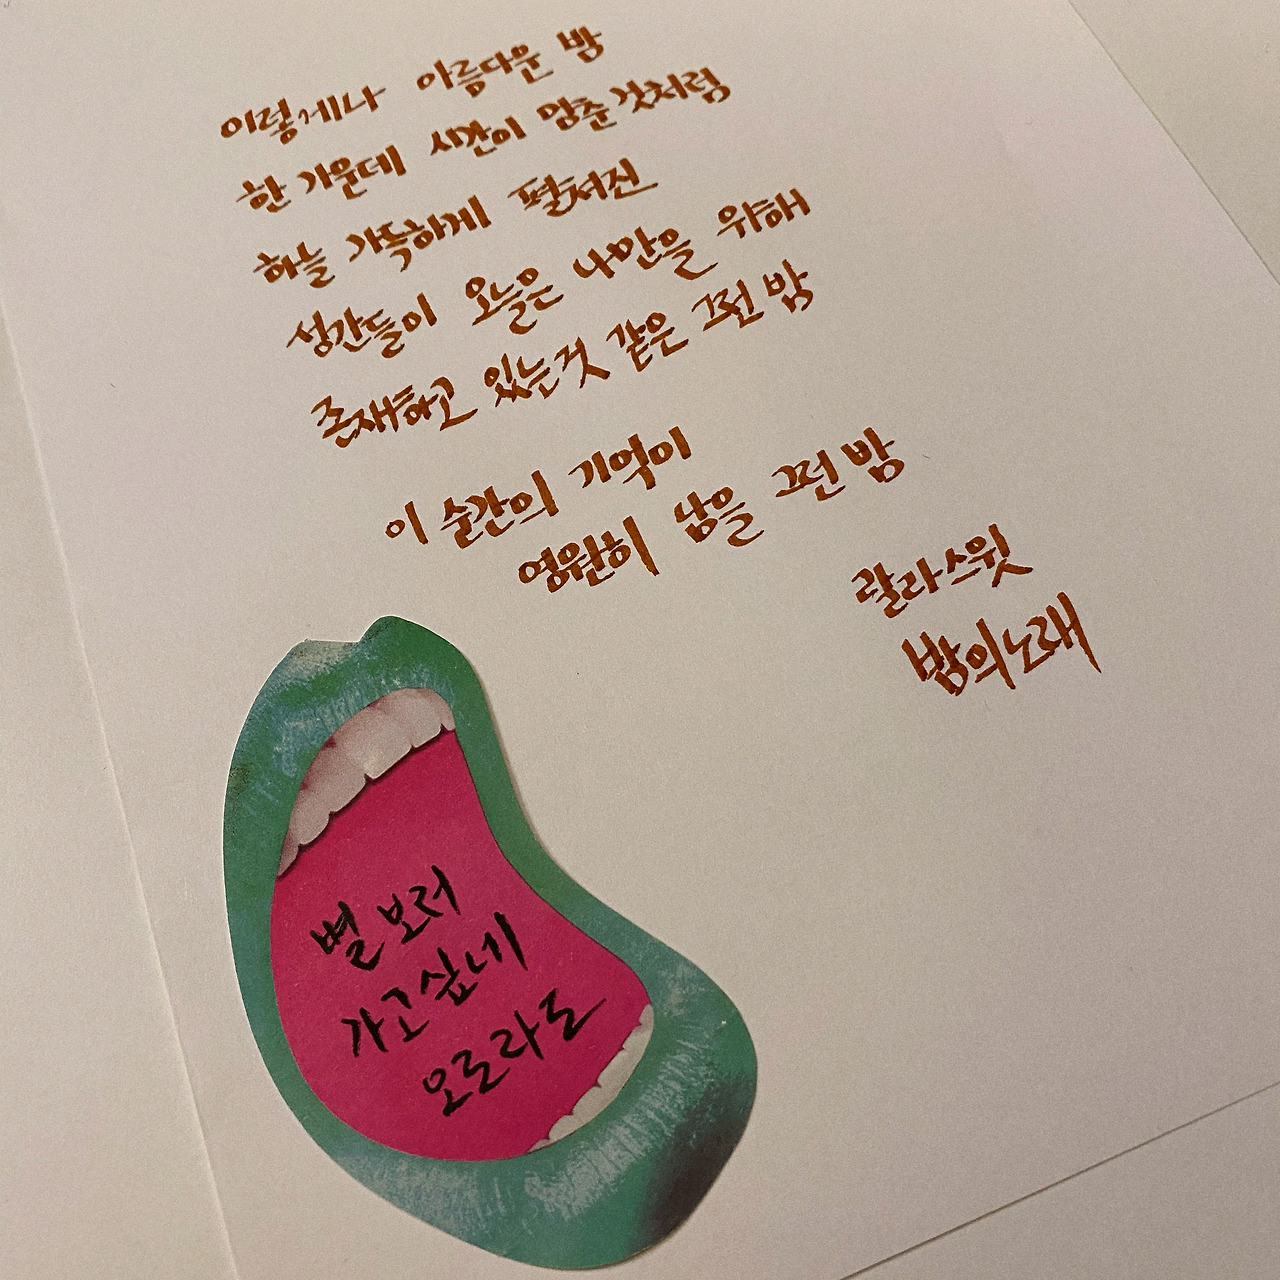 이렇게나 아름다운 밤
한 가운데 시간이 멈춘것처럼
하늘 가득하게 펼쳐진
성간들이 오늘은 나만을 위해
존재하고 있는것 같은 그런 밤
이 순간의 기억이
영원히 남을 그런 밤
랄라스윗
밤의노래
별 보러
가고싶네
오로라도